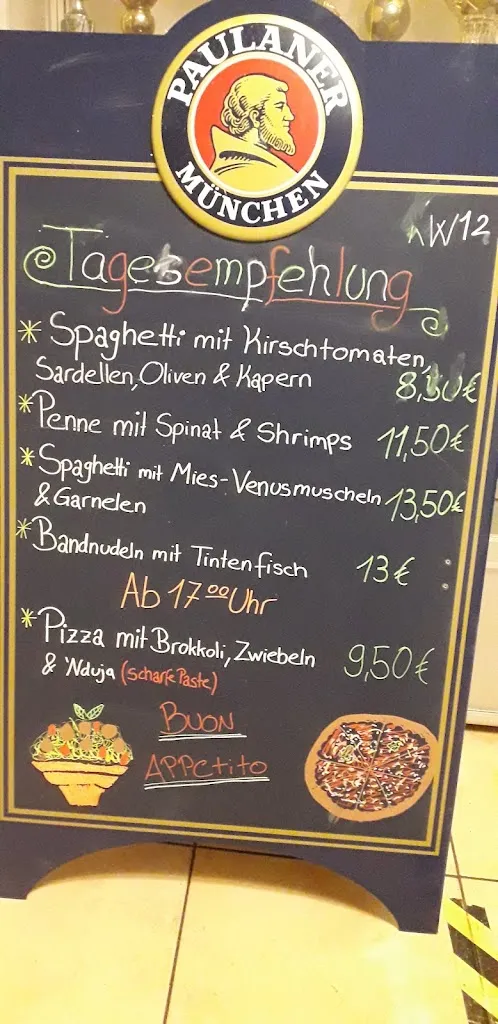 PAULANER
MÜNCHEN
KW12
Tagesempfehlung
* Spaghetti mit Kirschtomaten,
Sardellen, Oliven & Kapern 8,50€
* Penne mit Spinat & Shrimps 11,50€
* Spaghetti mit Mies-Venusmuscheln 13,50€
& Garnelen
* Bandnudeln mit Tintenfisch 13€
Ab 17⁰⁰ Uhr
* Pizza mit Brokkoli, Zwiebeln 9,50€
& 'Nduja (scharfe Paste)
BUON
APPEtito